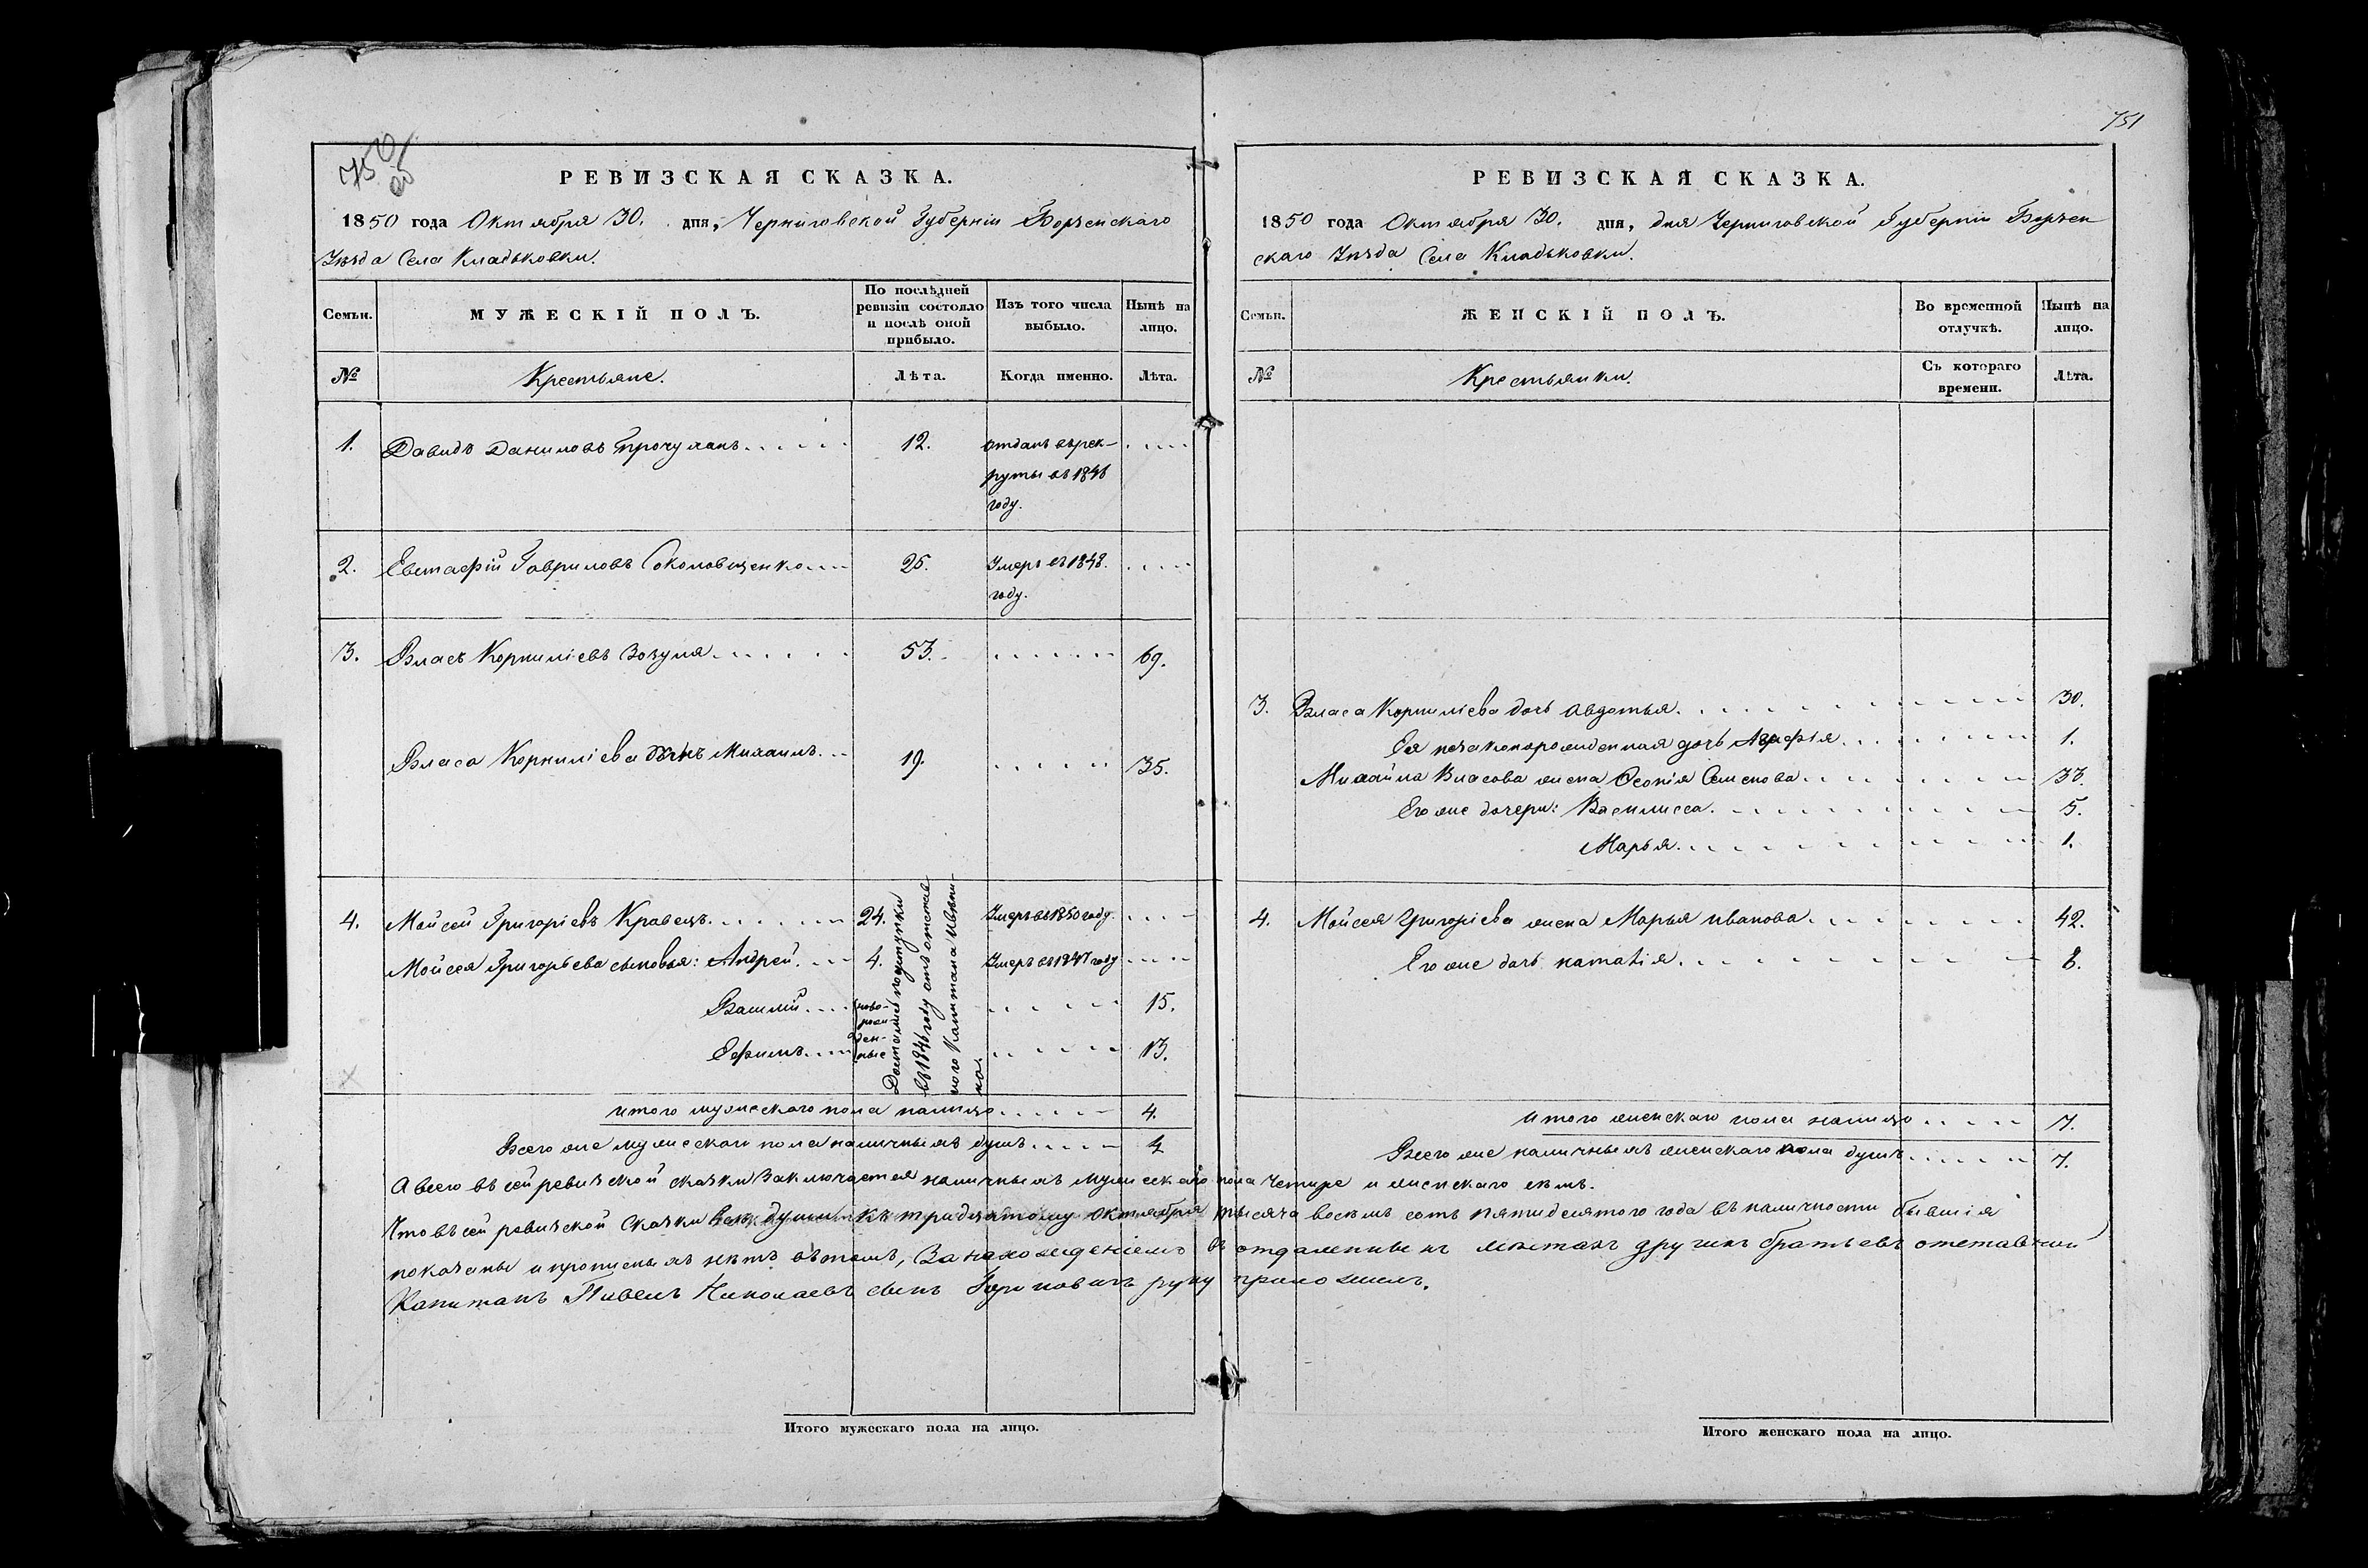 750 об
РЕВИЗСКАЯ СКАЗКА.
1850 года Октября 30. дня, Черниговской Губерніи Борзенскаго
Уѣзда Села Кладьковки.
Семьи.
МУЖЕСКІЙ ПОЛЪ.
По послѣдней ревизіи состояло и послѣ оной прибыло.
Изъ того числа выбыло.
Нынѣ на лицо.
№
Крестьяне.
Лѣта.
Когда именно.
Лѣта.
1. Давидъ Даниловъ 12. отданъ въ рек-
руты въ 1846
году.
2. Евстафій Гавриловъ 25. Умеръ въ 1848.
году.
3. Власъ Корниліевъ Зозуля 53. 69.
Власа Корниліева сынъ Михаилъ 19. 35.
4. Мойсей Григоріевъ Кравецъ 24. Умеръ въ 1850 году.
Мойсея Григорьева сыновья: Андрей. 4. Умеръ въ 1847 году
Василій ново- 15.
рож-
Ефимъ ден- 13.
ные
Достались по уступки
въ 1846 году отъ отстав-
ного Капитана
итого мужескаго пола налицо 4.
Всего же мужескаго пола наличныхъ душъ 4
751
РЕВИЗСКАЯ СКАЗКА.
1850 года Октября 30. дня, дня Черниговской Губерніи Борзен
скаго Уѣзда Села Кладьковки.
Семьи.
ЖЕНСКІЙ ПОЛЪ.
Во временной отлучкѣ.
Нынѣ на лицо.
№
Крестьянки.
Съ котораго времени.
Лѣта.
3. Власа Корниліева дочь Авдотья. 30.
Ея незаконорожденная дочь 1.
Михайла Власова жена Семенова 33.
Его же дочери: Василисса. 5.
Марья. 1.
4. Мойсея Григоріева жена Марья иванова 42.
Его же дочь наталія. 8.
итого женскаго пола налицо 7.
Всего же наличныхъ женскаго пола душъ 7.
А всего въ сей ревизской сказки заключается наличныхъ мужескаго пола четыре и женскаго семь.
Что въ сей ревизской сказки все души къ тридцатому октября тысяча восемь сотъ пятидесятого года въ наличности бывшія
показаны и прописныхъ нетъ въ томъ, За нахождѣніемъ въ отдаленныхъ местахъ другихъ братьевъ отставной
Капитанъ Павелъ Николаевъ сынъ руку приложилъ.
Итого мужескаго пола на лицо.
Итого женскаго пола на лицо.